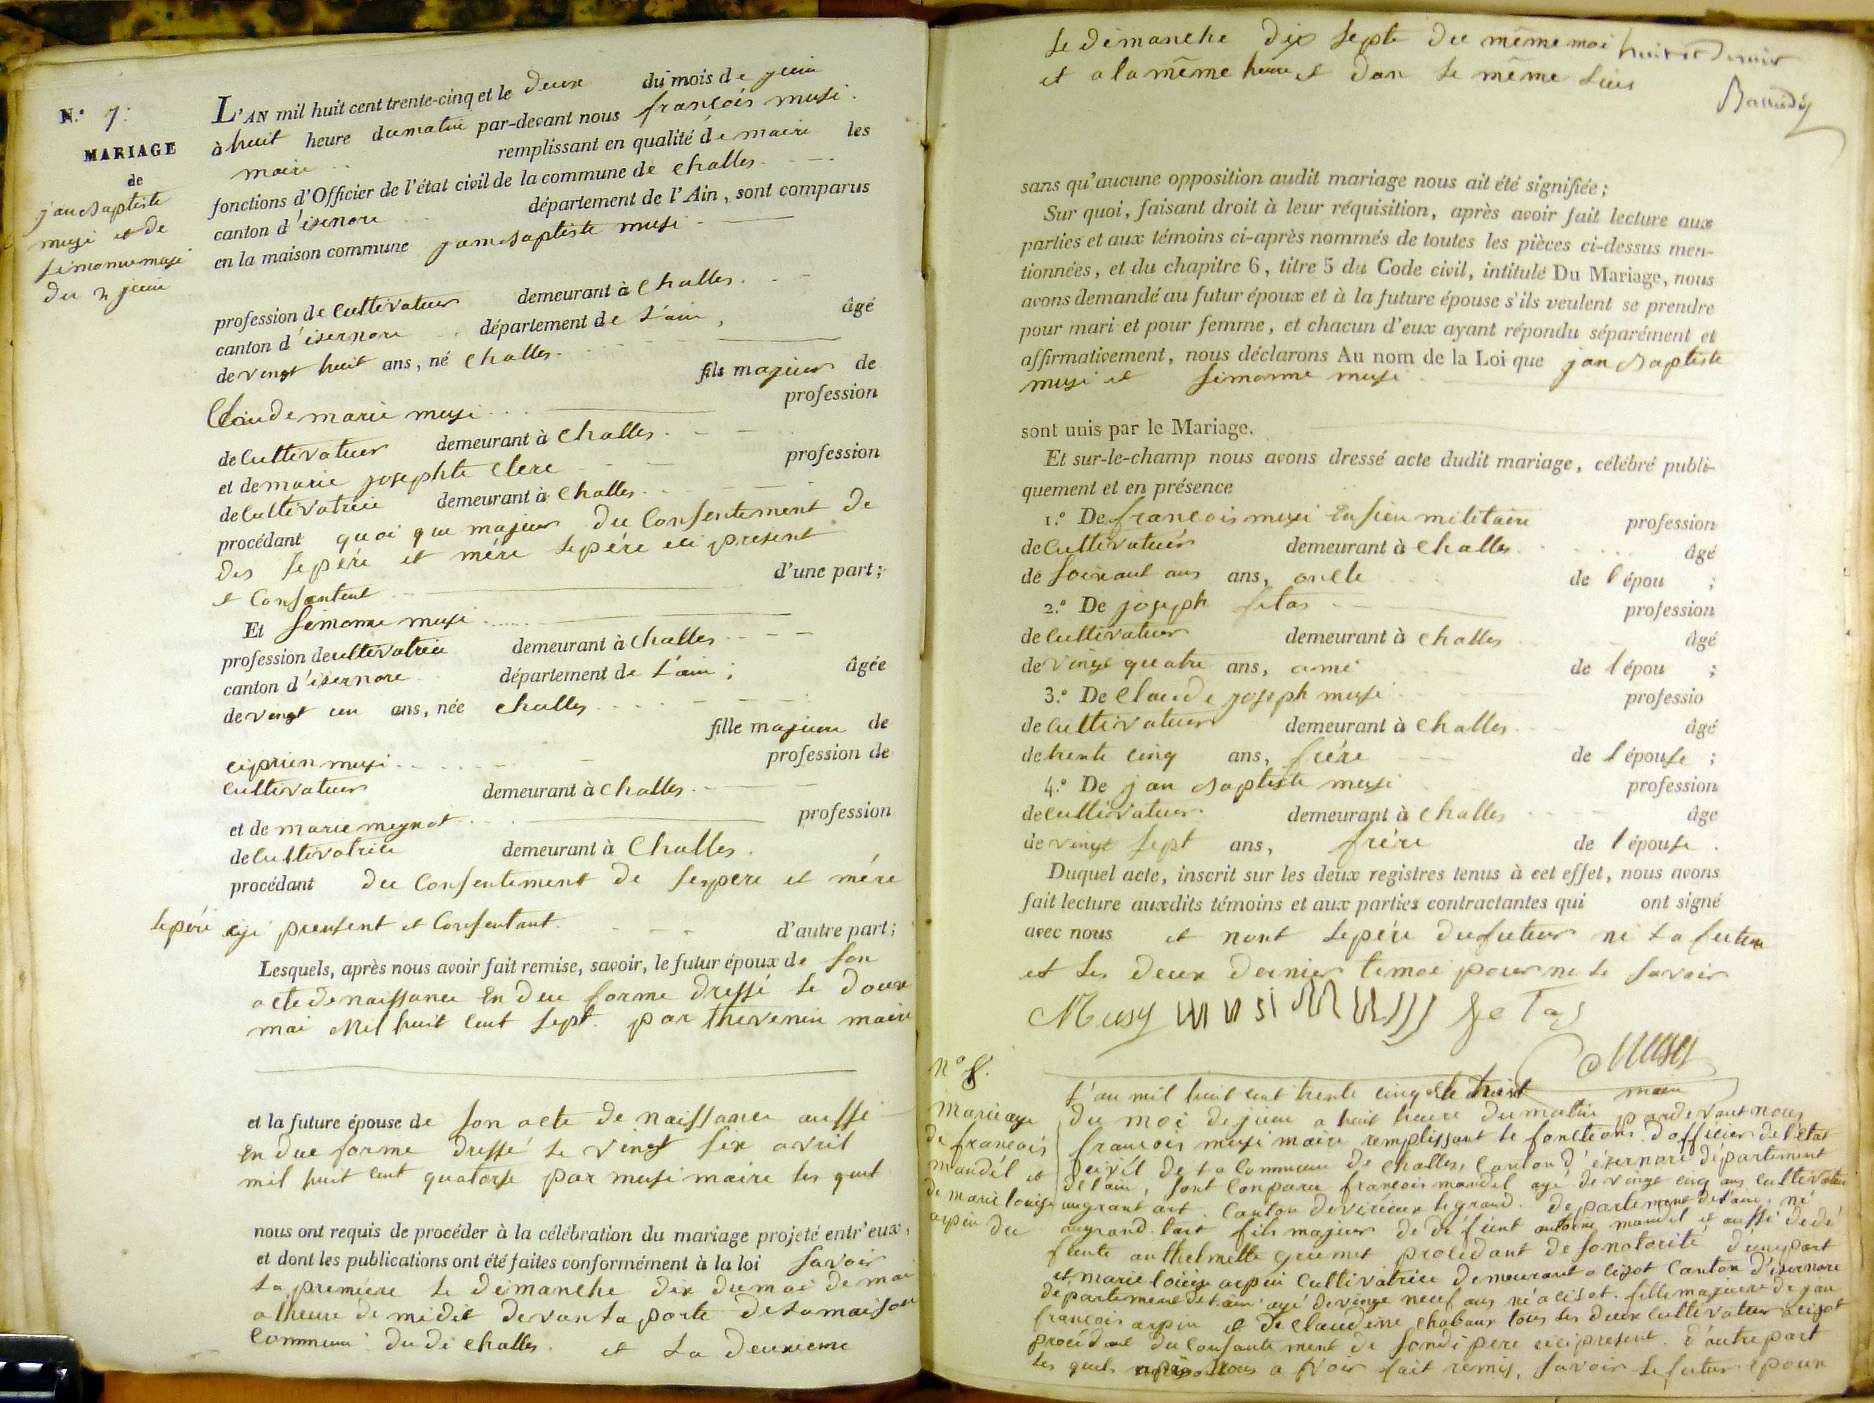 N.° 7.
MARIAGE
de
jan Baptiste
musi et de
Simonne musi
du 2 juin
L'AN mil huit cent trente-cinq et le deux du mois de juin
à huit heure du matin par-devant nous françois musi
maire remplissant en qualité de maire les
fonctions d'Officier de l'état civil de la commune de Challes
canton d'isernore département de l'Ain, sont comparus
en la maison commune jan Baptiste musi
profession de cultivateur demeurant à Challes
canton d'isernore département de l'ain, âgé
de vingt huit ans, né Challes
fils majeur de
Claude marie musi profession
de cultivateur demeurant à Challes
et de marie josephte Clerc profession
de cultivatrice demeurant à Challes
procédant quoi que majeur du Consentement de
des se père et mère se père ici present
et Consentent d'une part;
Et Simonne musi
profession de cultivatrice demeurant à Challes
canton d'isernore département de l'ain; âgée
de vingt un ans, née Challes
fille majeure de
ciprien musi profession de
cultivateur demeurant à Challes
et de marie meynot profession
de cultivatrice demeurant à Challes
procédant du Consentement de ses pere et mère
se père ici present et Consentant d'autre part;
Lesquels, après nous avoir fait remise, savoir, le futur époux de son
acte de naissance en due forme dressé le douze
mai mil huit cent sept par thevenin maire
et la future épouse de son acte de naissance aussi
en due forme dressé le vingt six avril
mil huit cent quatorse par musi maire les quel
nous ont requis de procéder à la célébration du mariage projeté entr'eux,
et dont les publications ont été faites conformément à la loi savoir
la premiere le dimanche dix du moi de mai
a lheure de midit devan la porte de la maison
Commune du di Challes et la deuxieme
le dimanche dix sept du même moi
et a la même heure et dan le même lieu
sans qu'aucune opposition audit mariage nous ait été signifiée;
Sur quoi, faisant droit à leur réquisition, après avoir fait lecture aux
parties et aux témoins ci-après nommés de toutes les pièces ci-dessus men-
tionnées, et du chapitre 6, titre 5 du Code civil, intitulé Du Mariage, nous
avons demandé au futur époux et à la future épouse s'ils veulent se prendre
pour mari et pour femme, et chacun d'eux ayant répondu séparément et
affirmativement, nous déclarons Au nom de la Loi que jan Baptiste
musi et Simonne musi
sont unis par le Mariage.
Et sur-le-champ nous avons dressé acte dudit mariage, célébré publi-
quement et en présence
1.° De françois musi ensien militaire profession
de cultivateur demeurant à Challes âgé
de soixant ans ans, oncle de l'épou ;
2.° De joseph fetas profession
de cultivateur demeurant à Challes âgé
de vingt quatre ans, ami de l'épou ;
3.° De Claude joseph musi professio
de cultivateur demeurant à Challes âgé
de trente cinq ans, frère de l'épouse ;
4.° De jan Baptiste musi profession
de cultivateur demeurant à Challes âge
de vingt sept ans, frère de l'épouse .
Duquel acte, inscrit sur les deux registres tenus à cet effet, nous avons
fait lecture auxdits témoins et aux parties contractantes qui ont signé
avec nous et nont le père du futur ni la future
et les deux dernier temoi pour ne le savoir
Musy musi fetas
Musy
maire
N° 8.
Mariage
de françois
mandél et
de marie louise
arpin du
L'an mil huit cent trente cinq et le huit
du moi de juin a huit heure du matin pardevant nous
françois musi maire remplissant le fonctions d'officier de l'état
civil de la Commune de Challes, Canton d'isernore département
de l'ain, sont Conparu françois mandél agé de vingt cinq ans cultivateur
fils majeur de défunt antoine mandel et aussi de dé
funte anthelmette procédant de son otorité d'une part
et marie louise arpin Cultivatrice demeurant a Canton d'isernore
département de l'ain agé de vingt neuf ans fille majeure de jan
françois arpin et de Claudine tous les deux Cultivateur
procédant du Consantement de son di pere ici present. d'autre part
les quel apres nous avoir fait remis, savoir le futur epoux